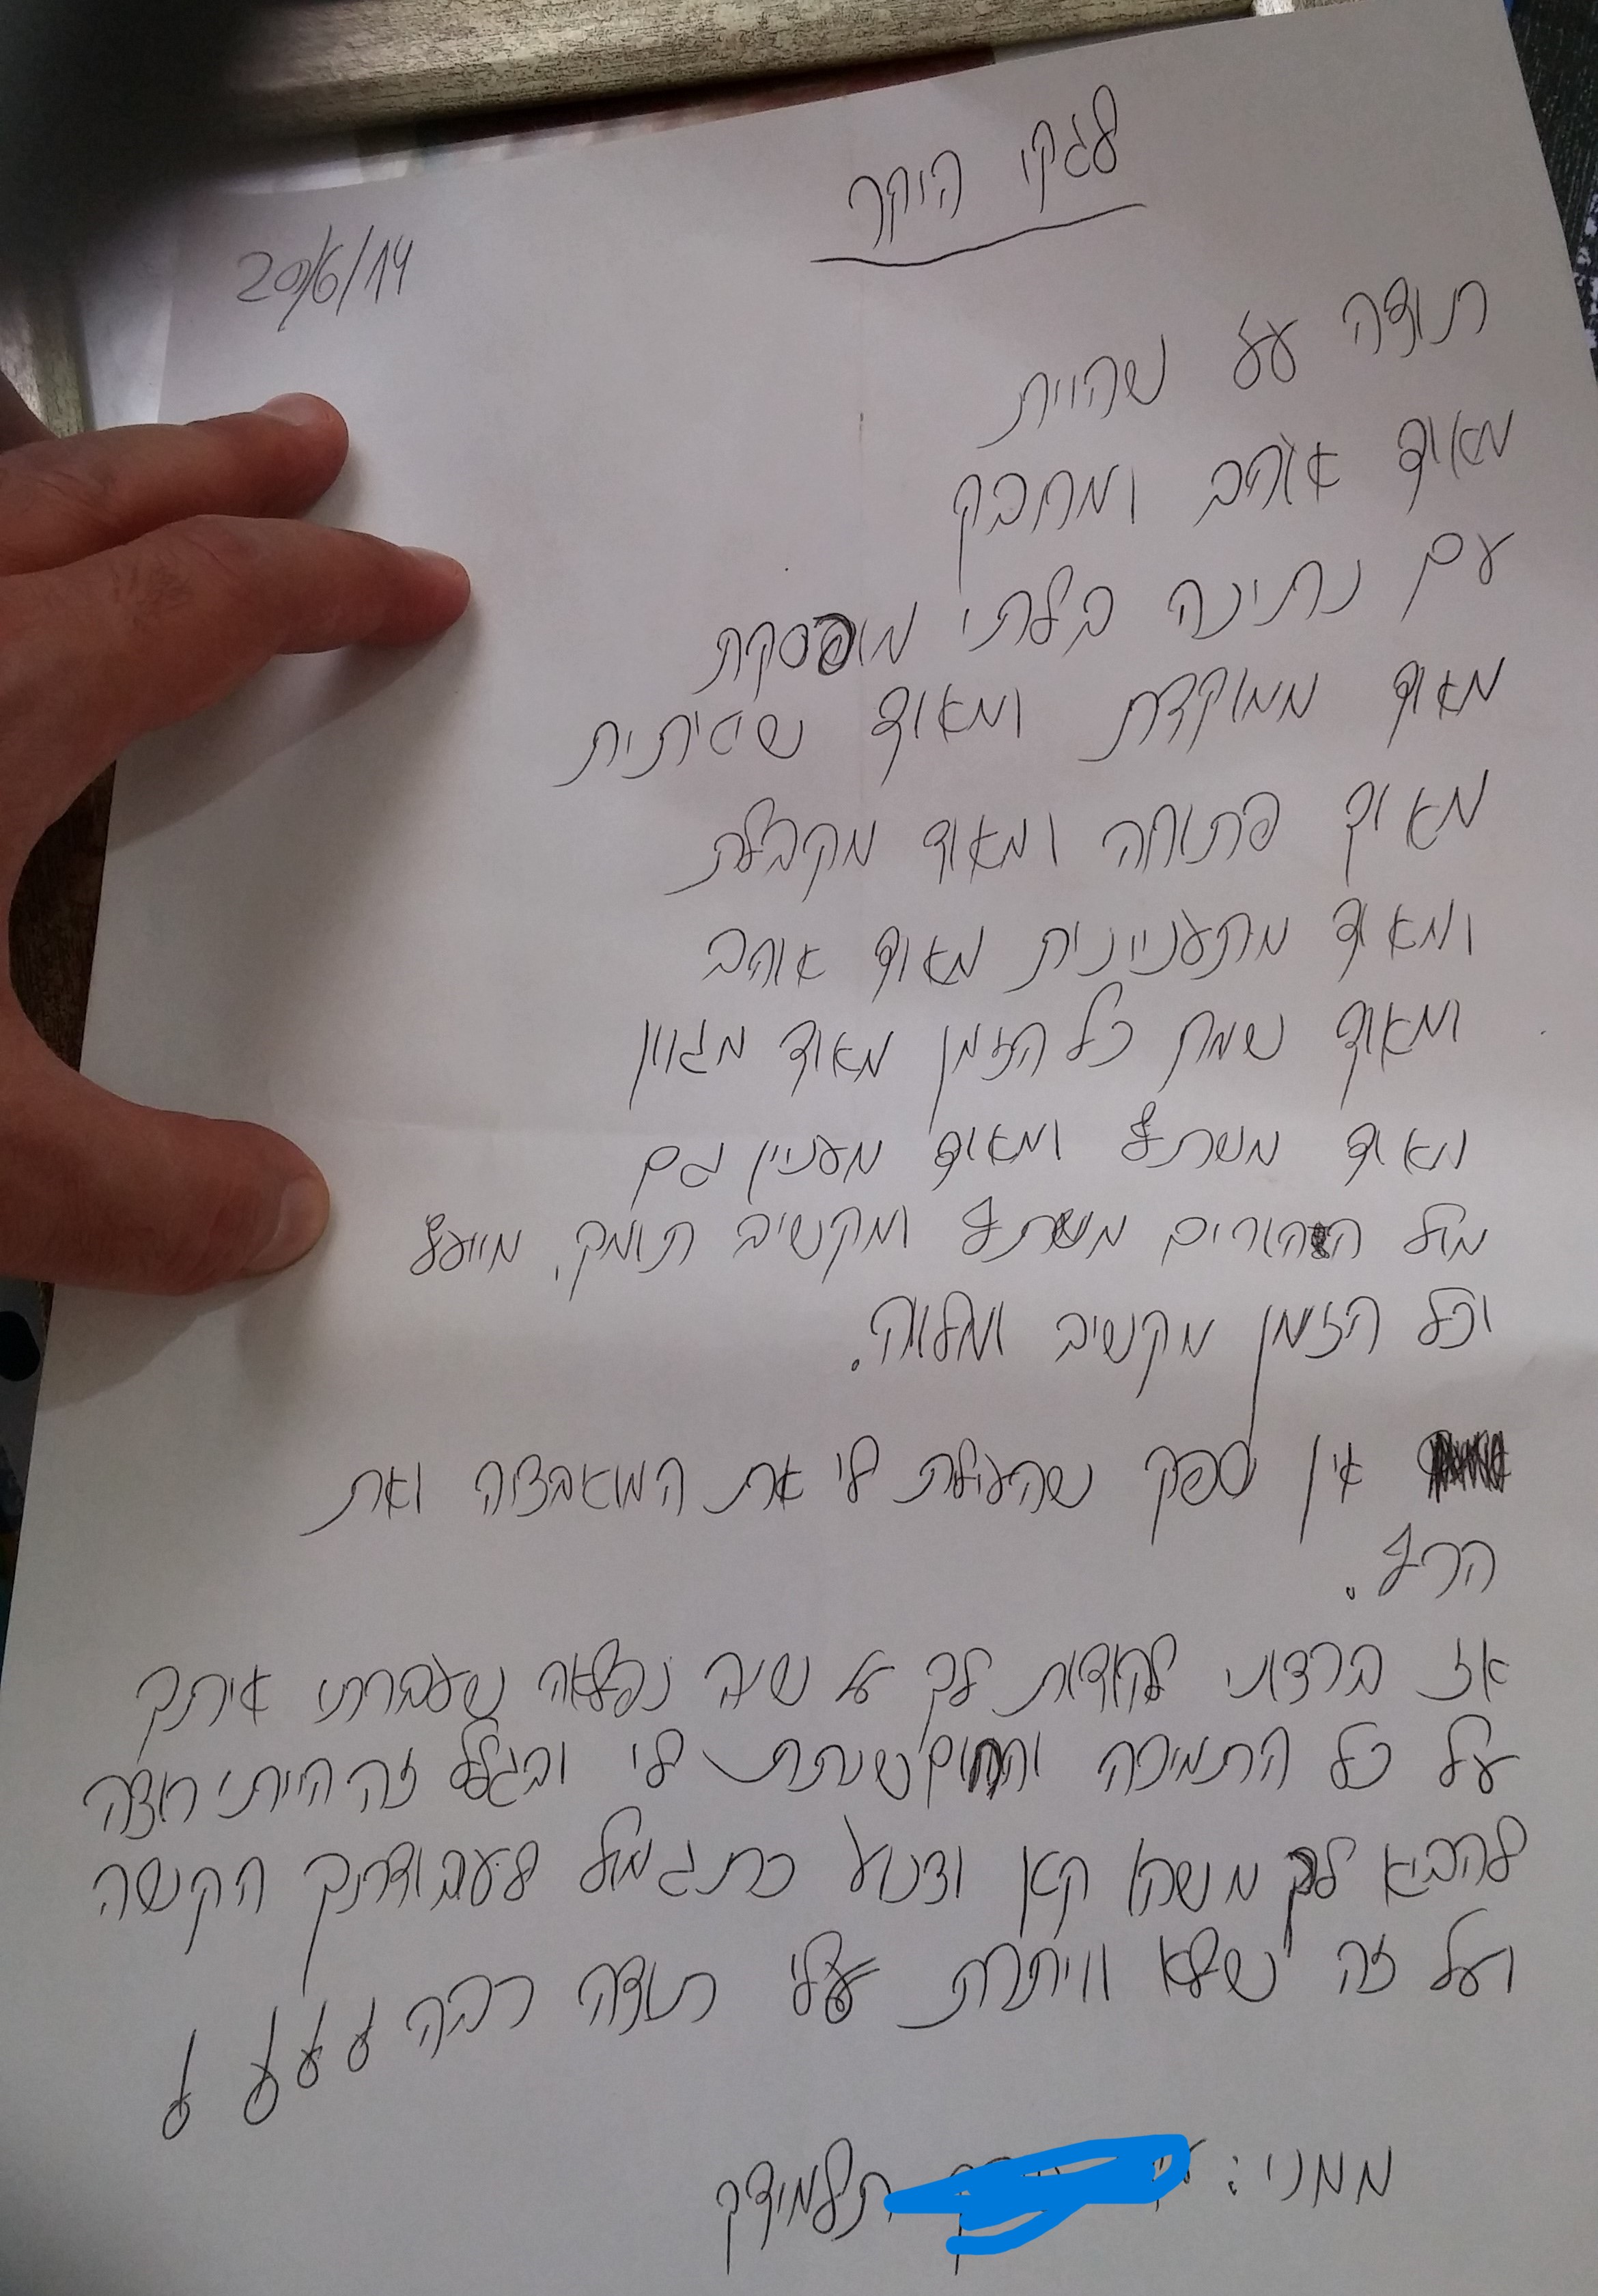 לגקי היקר
20/6/14
תודה על שהיית
מאוד אוהב ומחבק
עם נתינה בלתי מופסקת
מאוד ממוקדת ומאוד
מאוד פתוחה ומאוד מקבלת
ומאוד מתעניינית מאוד אוהב
ומאוד שמח כל הזמן מאוד מגוון
מאוד משתף ומאוד מעניין גם
מול ההורים משתף ומקשיב תומך, מייעץ
וכל הזמן מקשיב ומלווה.
אין ספק שהעלת לי את המוטיבציה ואת
הרף.
אז ברצוני להודות לך על שנה נפלאה שעברתי איתך
על כל התמיכה והחום שנתת לי ובגלל זה הייתי רוצה
להביא לך משהו קטן וצנוע כתגמול לעבודתך הקשה
ועל זה שלא וויתרת עלי תודה רבה
ממני: תלמידך